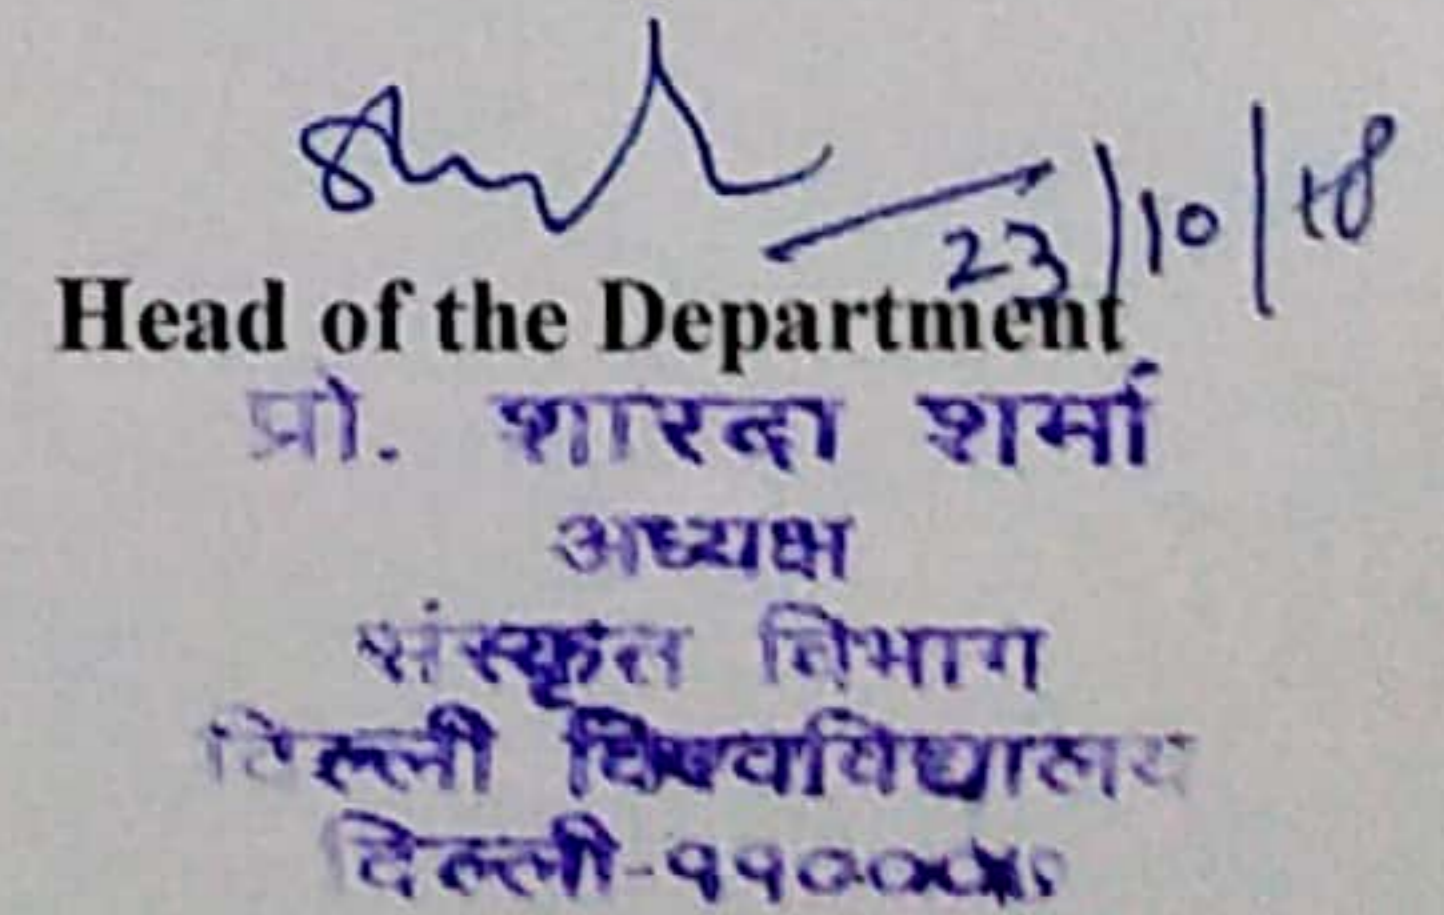 23/10/18
Head of the Department
प्रो. शारदा शर्मा
अध्यक्ष
संस्कृत विभाग
दिल्ली विश्वविद्यालय
दिल्ली-